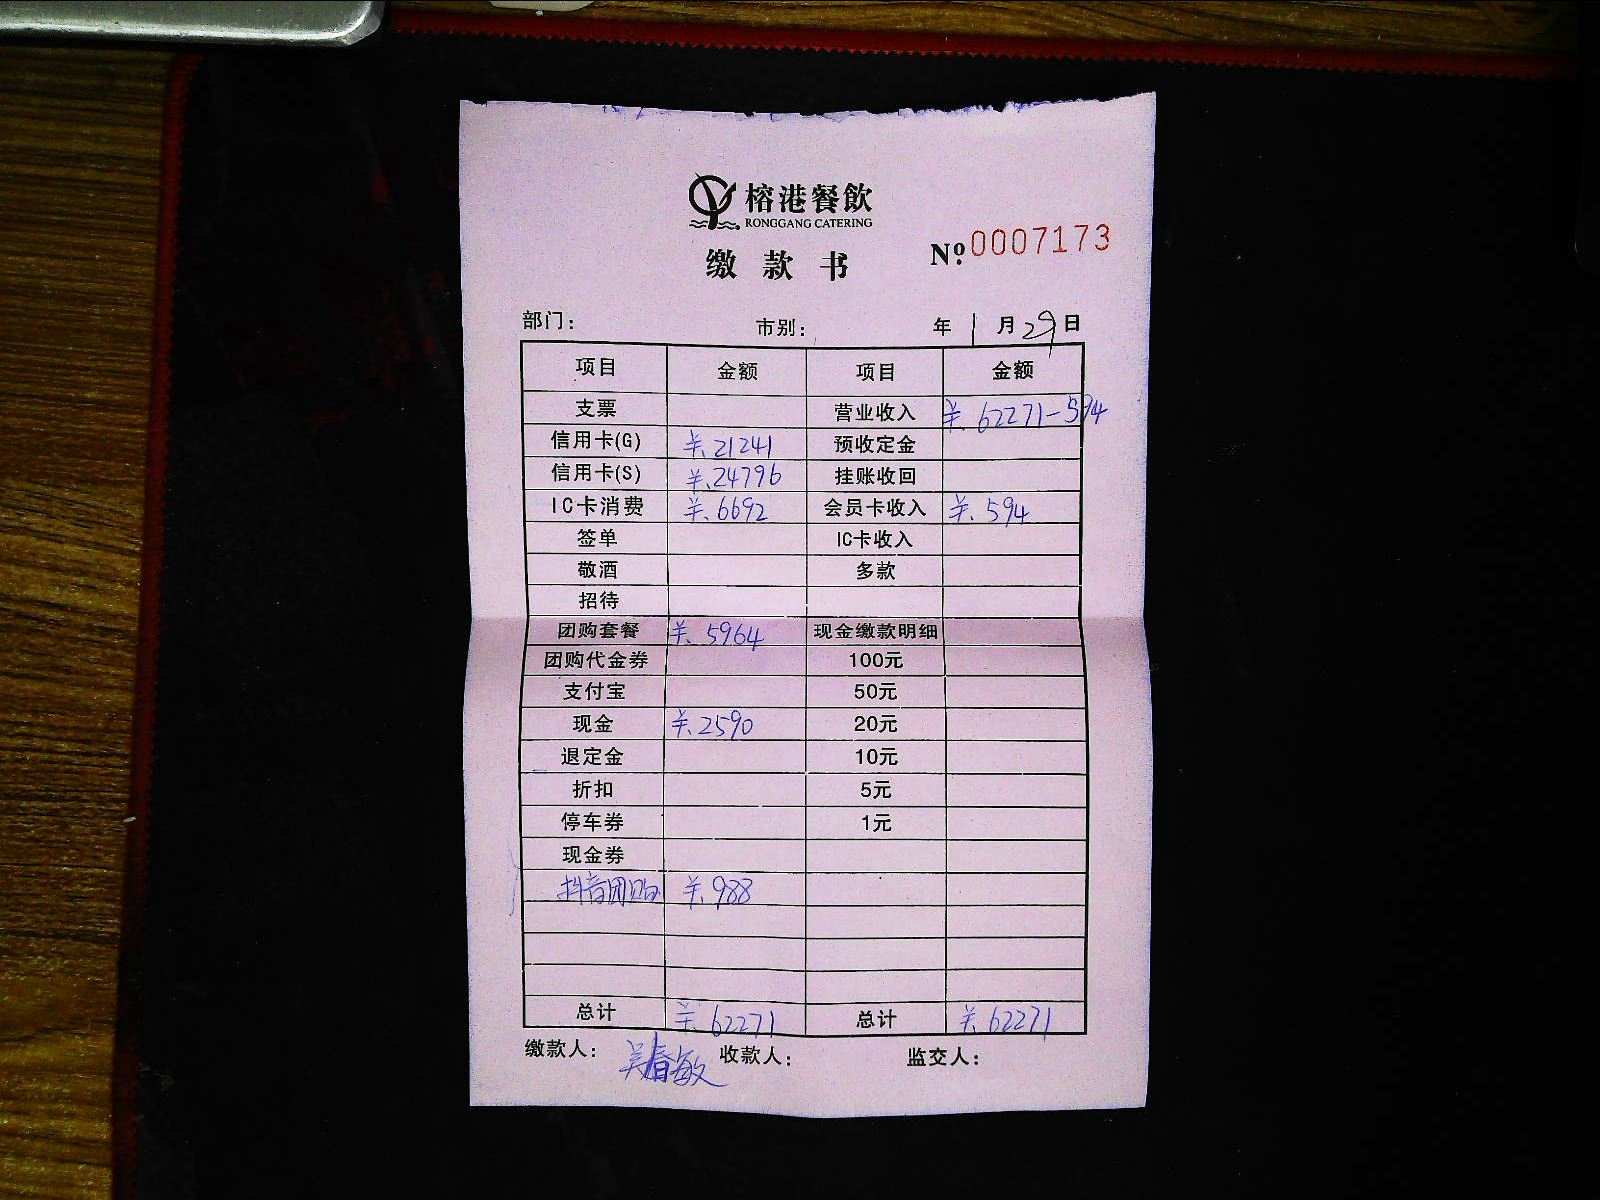 榕港餐飲
RONGGANG CATERING
缴款书 Nº 0007173
部门: 市别: 年 1月29日
项目 金额 项目 金额
支票 营业收入 ¥.62271-594
信用卡(G) ¥.21241 预收定金
信用卡(S) ¥.24796 挂账收回
IC卡消费 ¥.6692 会员卡收入 ¥.594
签单 IC卡收入
敬酒 多款
招待
团购套餐 ¥.5964 现金缴款明细
团购代金券 100元
支付宝 50元
现金 ¥.2590 20元
退定金 10元
折扣 5元
停车券 1元
现金券
抖音团购 ¥.988
总计 ¥.62271 总计 ¥.62271
缴款人: 吴春敏 收款人: 监交人: